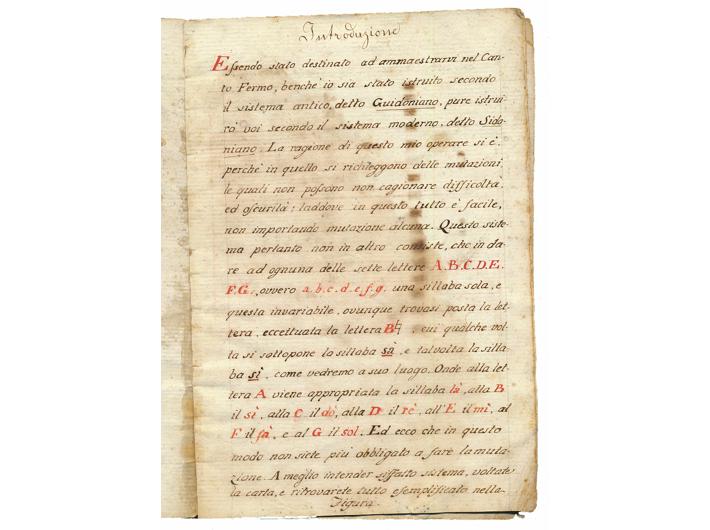 Introduzione
Essendo stato destinato ad ammaestrarvi nel Can-
to Fermo, benchè io sia stato istruito secondo
il sistema antico, detto Guidoniano, pure istrui-
rò voi secondo il sistema moderno, detto Sido-
niano. La ragione di questo mio operare si è,
perchè in quello si richieggono delle mutazioni,
le quali non possono non cagionare difficoltà,
ed oscurità; laddove in questo tutto è facile,
non importando mutazione alcuna. Questo siste-
ma pertanto non in altro consiste, che in da-
re ad ognuna delle sette lettere A.B.C.D.E.
F.G., ovvero a.b.c.d.e.f.g. una sillaba sola, e
questa invariabile, ovunque trovasi posta la let-
tera, eccettuata la lettera B♮, cui qualche vol-
ta si sottopone la sillaba sà, e talvolta la silla-
ba sì, come vedremo a suo luogo. Onde alla let-
tera A viene appropriata la sillaba là, alla B
il sì, alla C il dò, alla D il rè, all'E il mì, al
F il fà, e al G il sol. Ed ecco che in questo
modo non siete più obbligato a fare la muta-
zione. A meglio intender siffatto sistema, voltate
la carta, e ritrovarete tutto esemplificato nella
Figura.